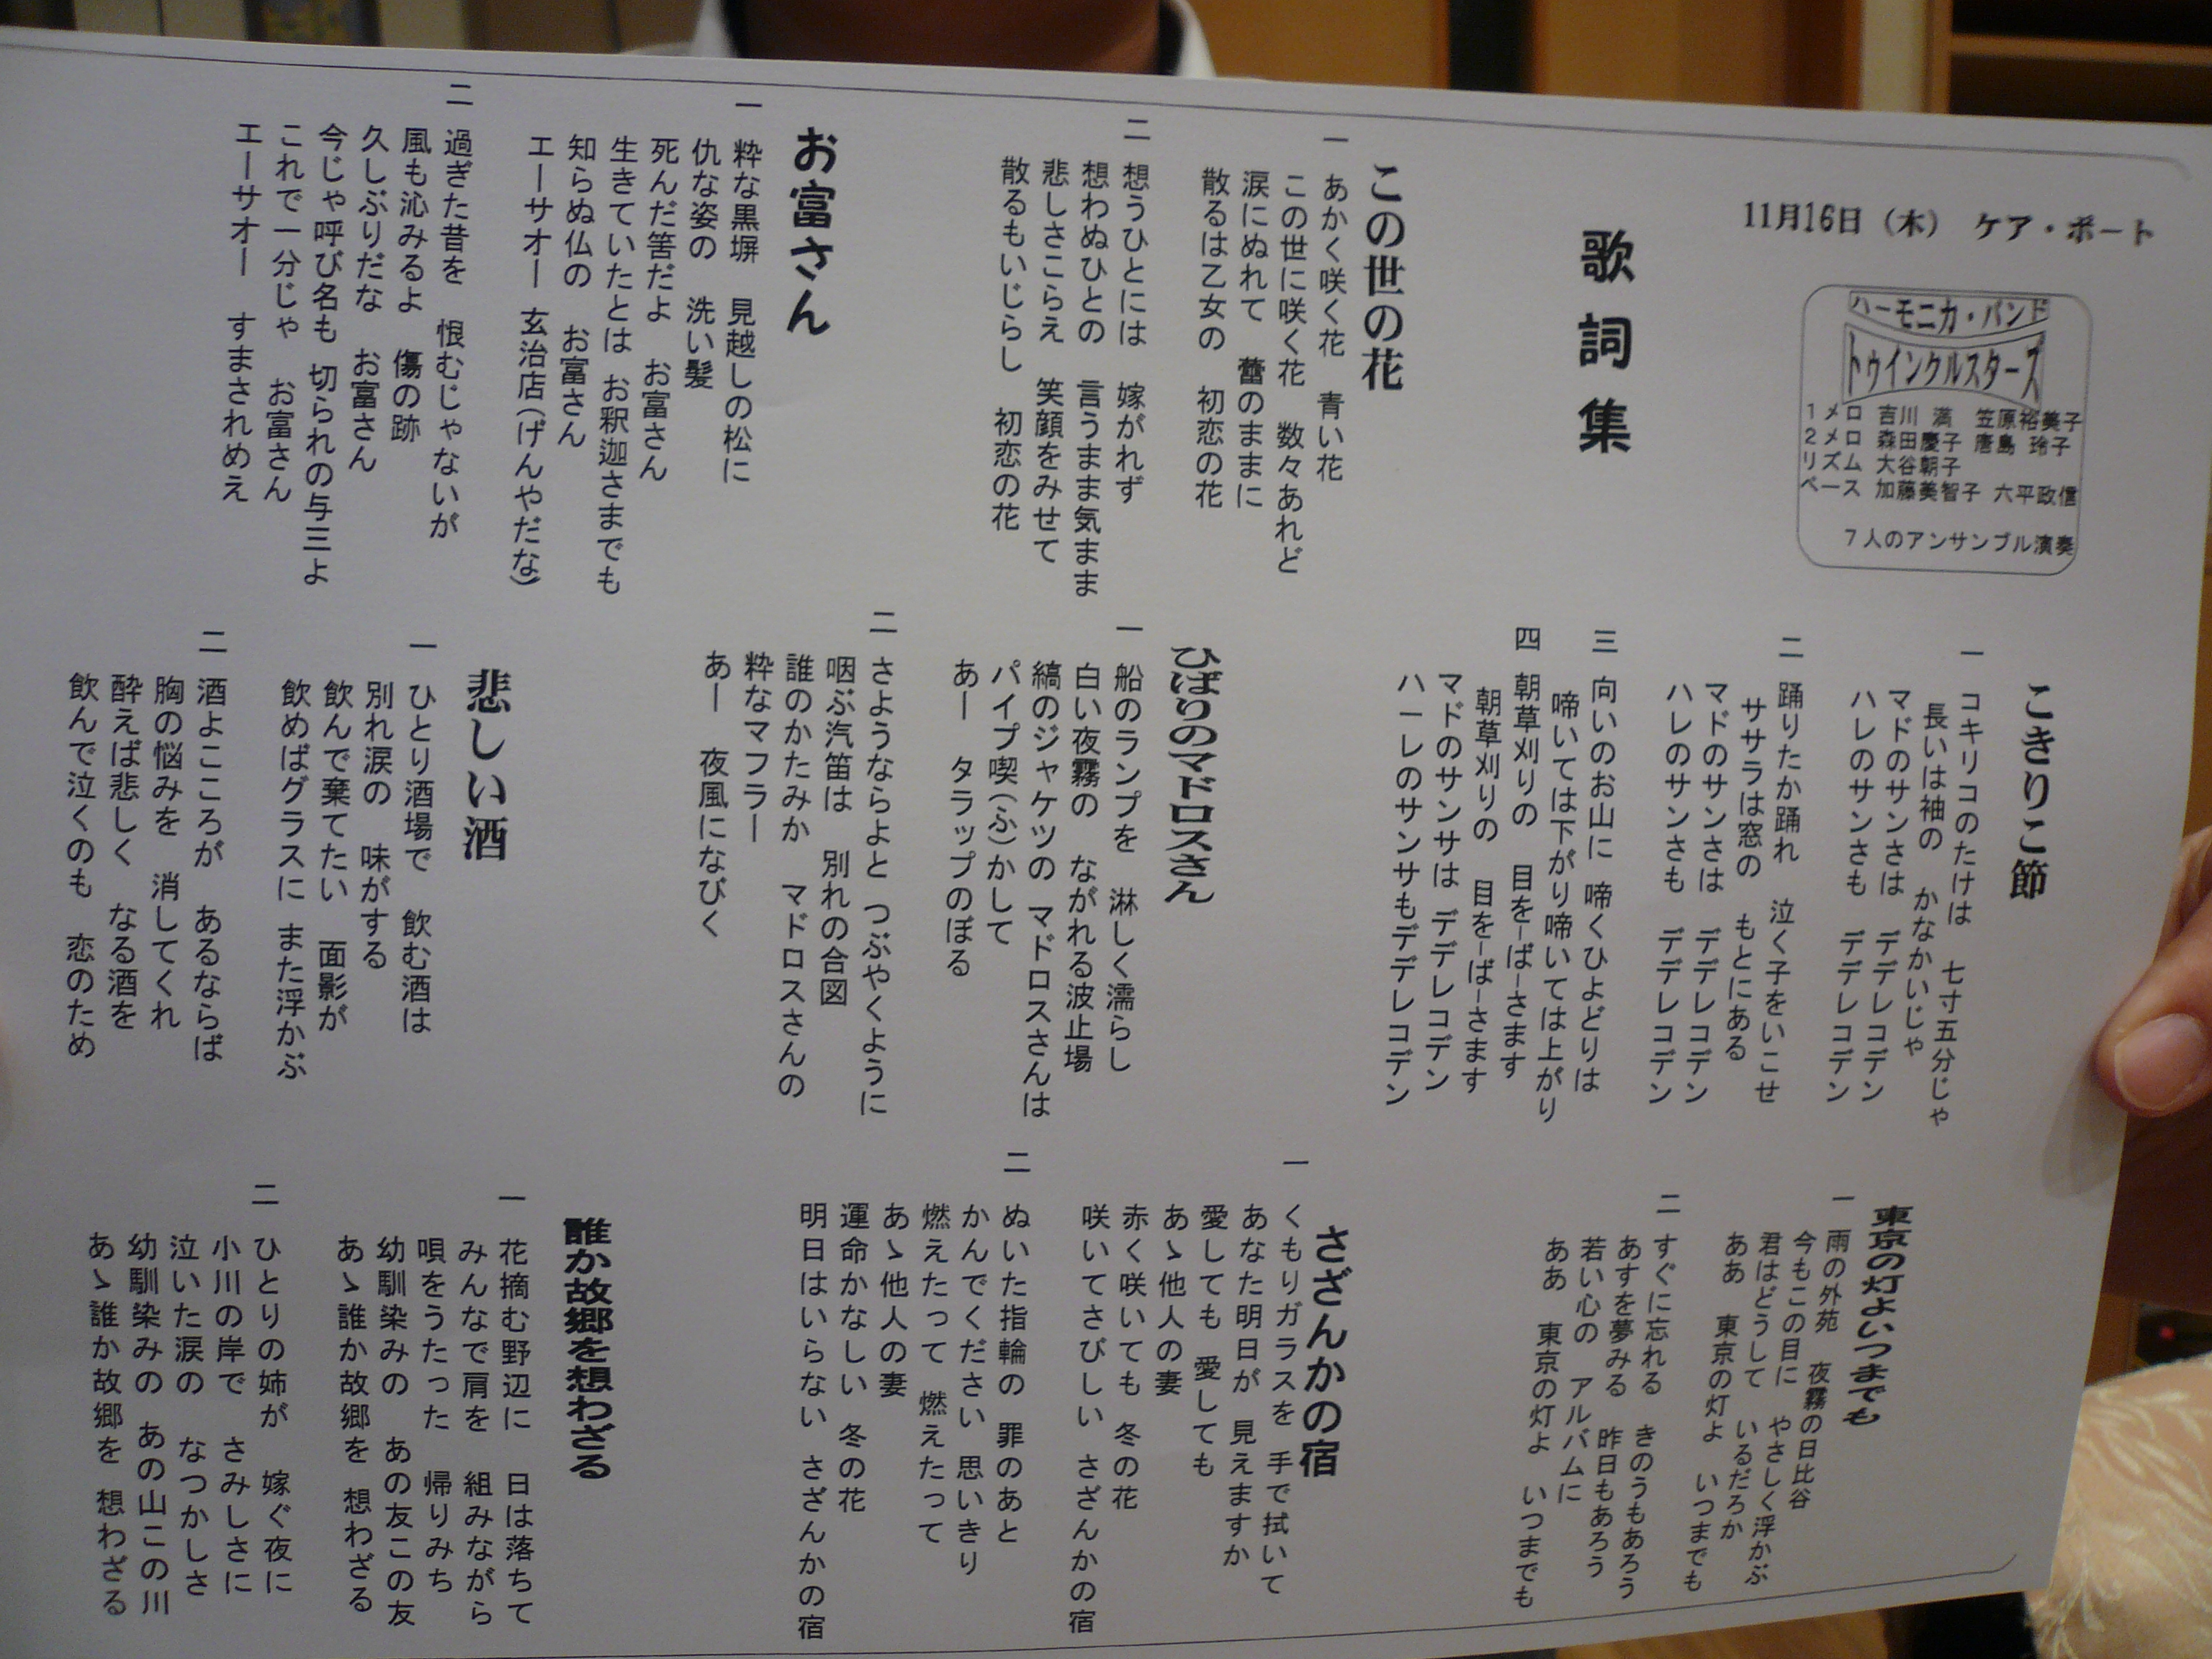 11月16日（木） ケア・ポート
ハーモニカ・バンド
トゥインクルスターズ
1メロ 吉川 満 笠原裕美子
2メロ 森田慶子 唐島 玲子
リズム 大谷朝子
ベース 加藤美智子 六平政信
7人のアンサンブル演奏
歌詞集
この世の花
一 あかく咲く花 青い花
この世に咲く花 数々あれど
涙にぬれて 蕾のままに
散るは乙女の 初恋の花
二 想うひとには 嫁がれず
想わぬひとの 言うまま気まま
悲しさこらえ 笑顔をみせて
散るもいじらし 初恋の花
お富さん
一 粋な黒塀 見越しの松に
仇な姿の 洗い髪
死んだ筈だよ お富さん
生きていたとは お釈迦さまでも
知らぬ仏の お富さん
エーサオー 玄治店(げんやだな)
二 過ぎた昔を 恨むじゃないが
風も沁みるよ 傷の跡
久しぶりだな お富さん
今じゃ呼び名も 切られの与三よ
これで一分じゃ お富さん
エーサオー すまされめえ
こきりこ節
一 コキリコのたけは 七寸五分じゃ
長いは袖の かなかいじゃ
マドのサンさは デデレコデン
ハレのサンさも デデレコデン
二 踊りたか踊れ 泣く子をいこせ
ササラは窓の もとにある
マドのサンさは デデレコデン
ハレのサンさも デデレコデン
三 向いのお山に 啼くひよどりは
啼いては下がり啼いては上がり
四 朝草刈りの 目をーばーさます
朝草刈りの 目をーばーさます
マドのサンサは デデレコデン
ハーレのサンサもデデレコデン
ひばりのマドロスさん
一 船のランプを 淋しく濡らし
白い夜霧の ながれる波止場
縞のジャケツの マドロスさんは
パイプ喫(ふ)かして
あー タラップのぼる
二 さようならよと つぶやくように
咽ぶ汽笛は 別れの合図
誰のかたみか マドロスさんの
粋なマフラー
あー 夜風になびく
悲しい酒
一 ひとり酒場で 飲む酒は
別れ涙の 味がする
飲んで棄てたい 面影が
飲めばグラスに また浮かぶ
二 酒よこころが あるならば
胸の悩みを 消してくれ
酔えば悲しく なる酒を
飲んで泣くのも 恋のため
東京の灯よいつまでも
一 雨の外苑 夜霧の日比谷
今もこの目に やさしく浮かぶ
君はどうして いるだろか
ああ 東京の灯よ いつまでも
二 すぐに忘れる きのうもあろう
あすを夢みる 昨日もあろう
若い心の アルバムに
ああ 東京の灯よ いつまでも
さざんかの宿
一 くもりガラスを 手で拭いて
あなた明日が 見えますか
愛しても 愛しても
あゝ他人の妻
赤く咲いても 冬の花
咲いてさびしい さざんかの宿
二 ぬいた指輪の 罪のあと
かんでください 思いきり
燃えたって 燃えたって
あゝ他人の妻
運命かなしい 冬の花
明日はいらない さざんかの宿
誰か故郷を想わざる
一 花摘む野辺に 日は落ちて
みんなで肩を 組みながら
唄をうたった 帰りみち
幼馴染みの あの友この友
あゝ誰か故郷を 想わざる
二 ひとりの姉が 嫁ぐ夜に
小川の岸で さみしさに
泣いた涙の なつかしさ
幼馴染みの あの山この川
あゝ誰か故郷を 想わざる